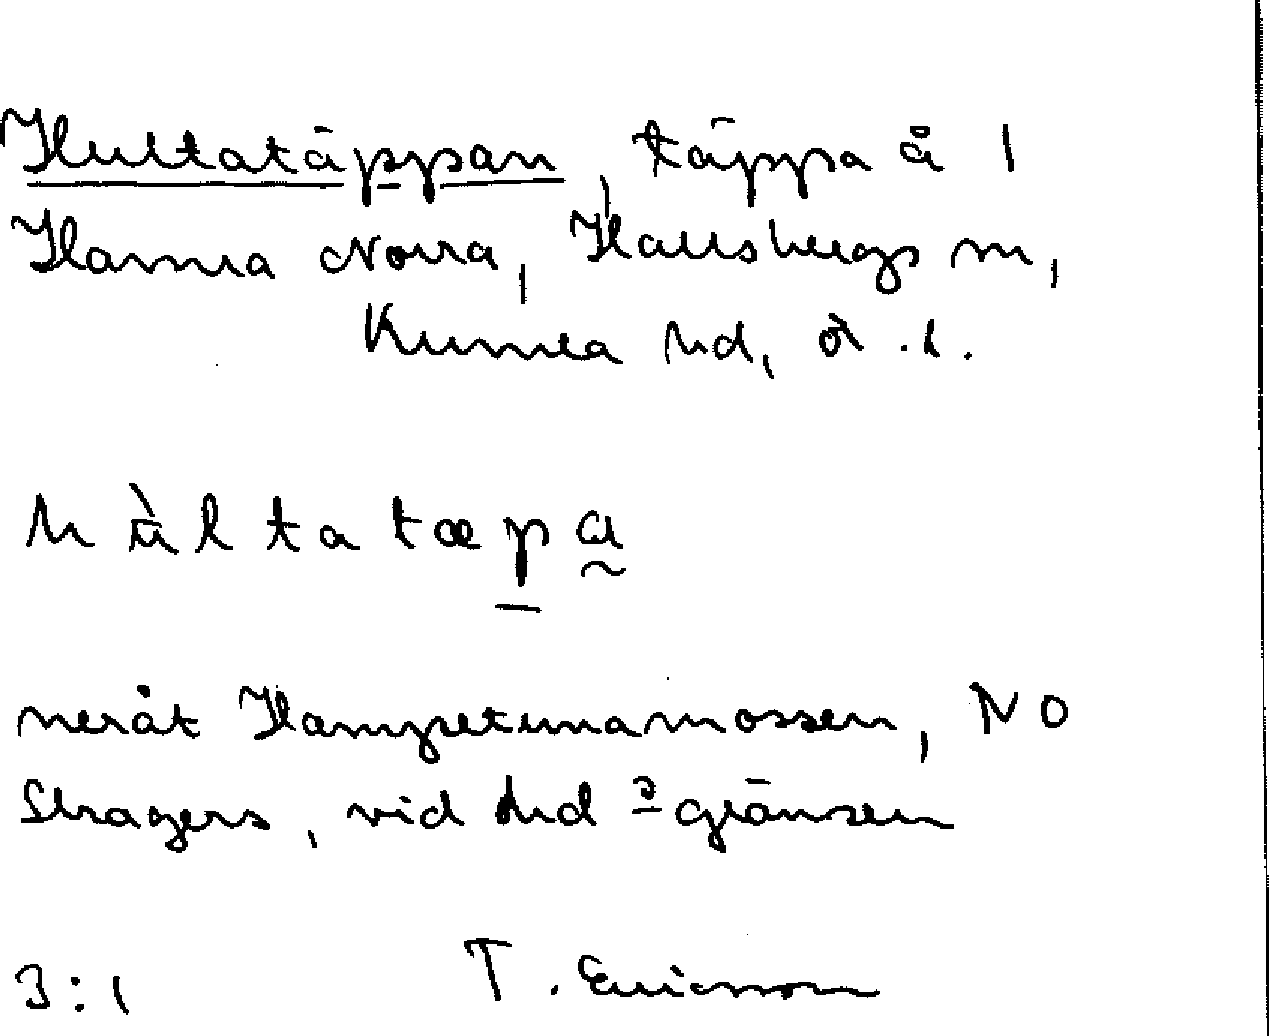 Hultatäppan, täppa å 1
Hamra Norra, Hallsbergs sn,
Kumla hd, ö. l.
h ù l t a t æ p a
neråt Hampetunamossen, NO
Skagers, vid hd-gränsen
3:1 T. Ericsson